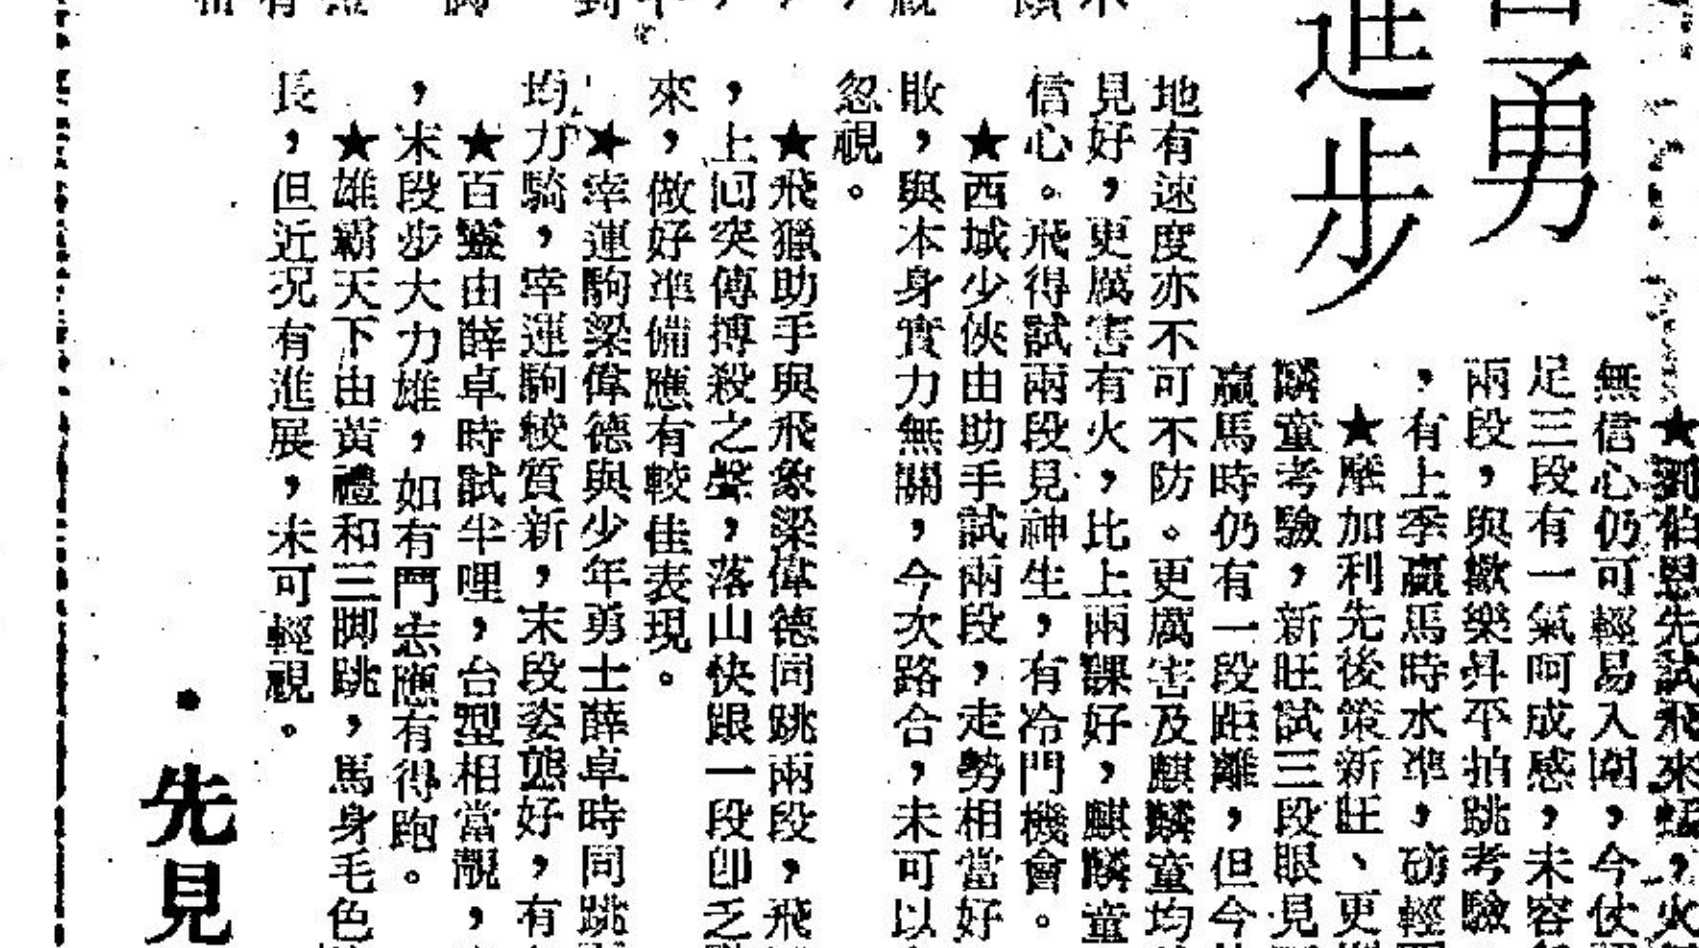 勇
進步
★劉伯恩先試飛來
無信心仍可輕易入閘，今仗
足三段有一氣呵成感，未容
兩段，與歡樂昇平拍跳考驗
，有上季贏馬時水準，磅輕
★摩加利先後策新旺、更
麟童考驗，新旺試三段眼見
贏馬時仍有一段距離，但今
地有速度亦不可不防。更厲害及麒麟童均
見好，更厲害有火，比上兩課好，麒麟童
信心。飛得試兩段見神生，有冷門機會。
★西城少俠由助手試兩段，走勢相當好
敗，與本身實力無關，今次路合，未可以
忽視。
★飛獵助手與飛象梁偉德同跳兩段，飛
，上回突傳搏殺之聲，落山快跟一段即乏
來，做好準備應有較佳表現。
★幸運駒梁偉德與少年勇士薛卓時同跳
均力騎，幸運駒較質新，末段姿態好，有
★百靈由薛卓時試半哩，台型相當靚，
，末段步大力雄，如有鬥志應有得跑。
★雄霸天下由黃禮和三脚跳，馬身毛色
長，但近況有進展，未可輕視。
・先見